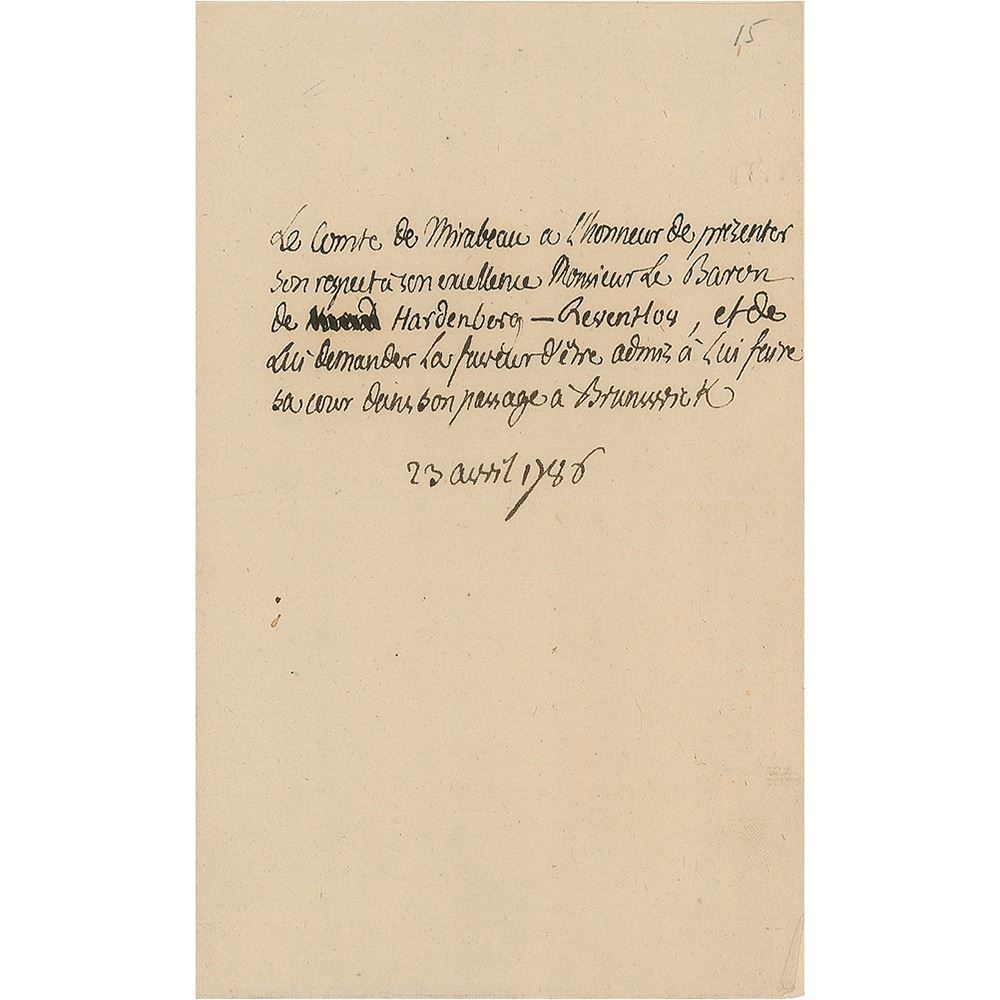 15
Le Comte de Mirabeau a l'honneur de présenter
son respect à son excellence Monsieur Le Baron
de Hardenberg — Reventlow, et de
Lui demander La faveur d'être admis à Lui faire
sa cour dans son passage à Brunswick
23 avril 1786